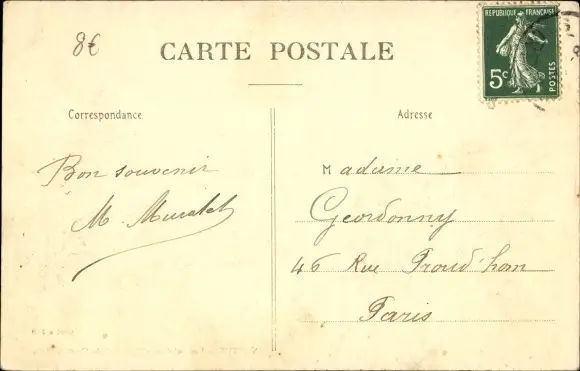 8€
CARTE POSTALE
REPUBLIQUE FRANÇAISE
5c
POSTES
Correspondance
Adresse
Bon souvenir
M Muratet
Madame
Geordonny
46 Rue Proud'hom
Paris